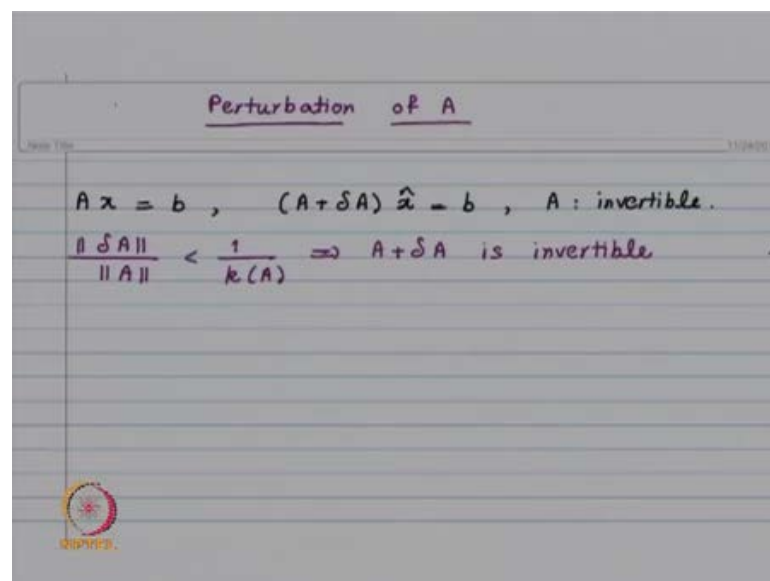 Perturbation of A
Note Title
A x = b , (A + δA) x̂ = b , A : invertible.
‖δA‖ / ‖A‖ < 1 / k(A) ⇒ A + δA is invertible